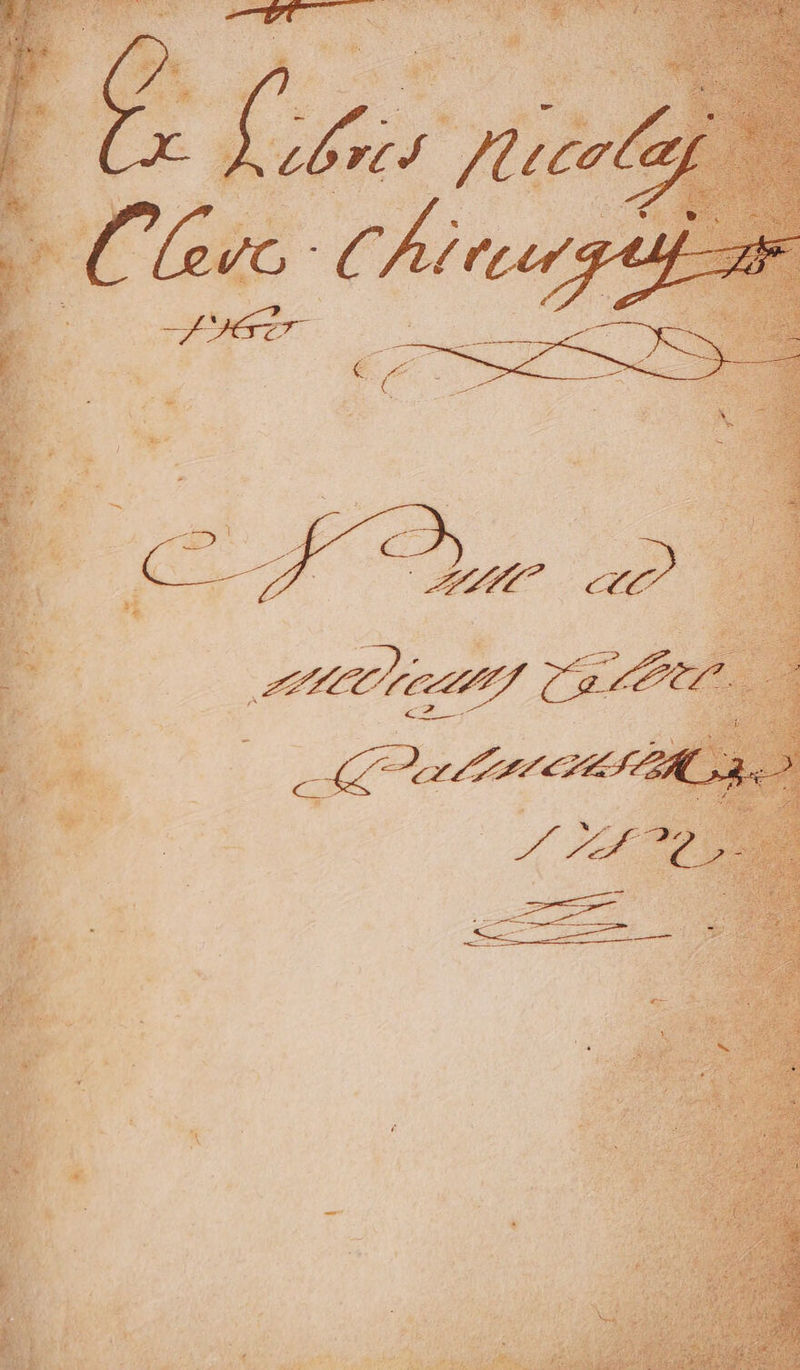 Ex Libris Nicolaj
Clerc Chirurgij
1760
Nunc ad
medicum Clerc
Palmensem
1782